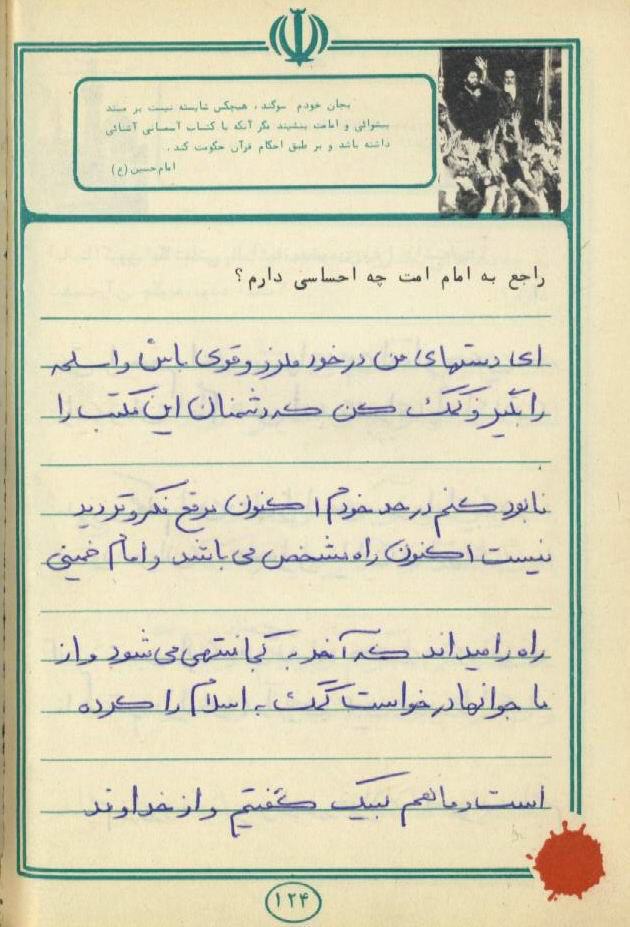 بجان خودم سوگند، هیچکس شایسته نیست بر مسند
پیشوائی و امامت بنشیند مگر آنکه با کتاب آسمانی آشنائی
داشته باشد و بر طبق احکام قرآن حکومت کند.
امام حسین (ع)
راجع به امام امت چه احساسی دارم؟
ای دستهای من در خود ملرز و قوی باش و اسلحه
را بگیر و کمک کن که دشمنان این مکتب را
نابود کنم در حد خودم اکنون موقع فکر و تردید
نیست اکنون راه مشخص می باشد و امام خمینی
راه را میداند که آخر به کجا منتهی می شود و از
ما جوانها درخواست کمک به اسلام را کرده
است و ما هم لبیک گفتیم و از خداوند
۱۲۴